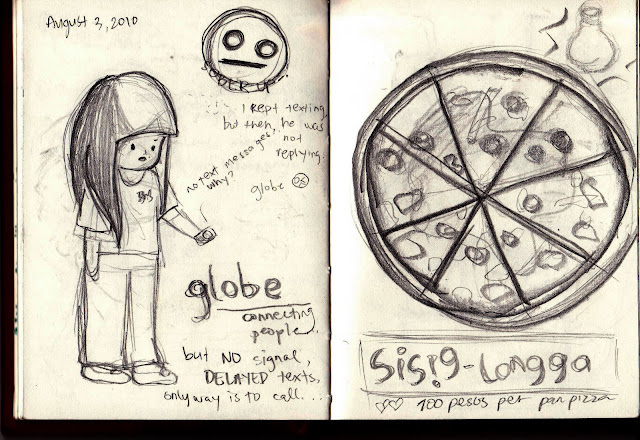 August 3, 2010
I kept texting,
but then, he was
not
replying.
no text messages,
why?
globe
globe
connecting
people.
but NO signal,
DELAYED texts,
only way is to call....
sisig-Longga
100 pesos per pan pizza